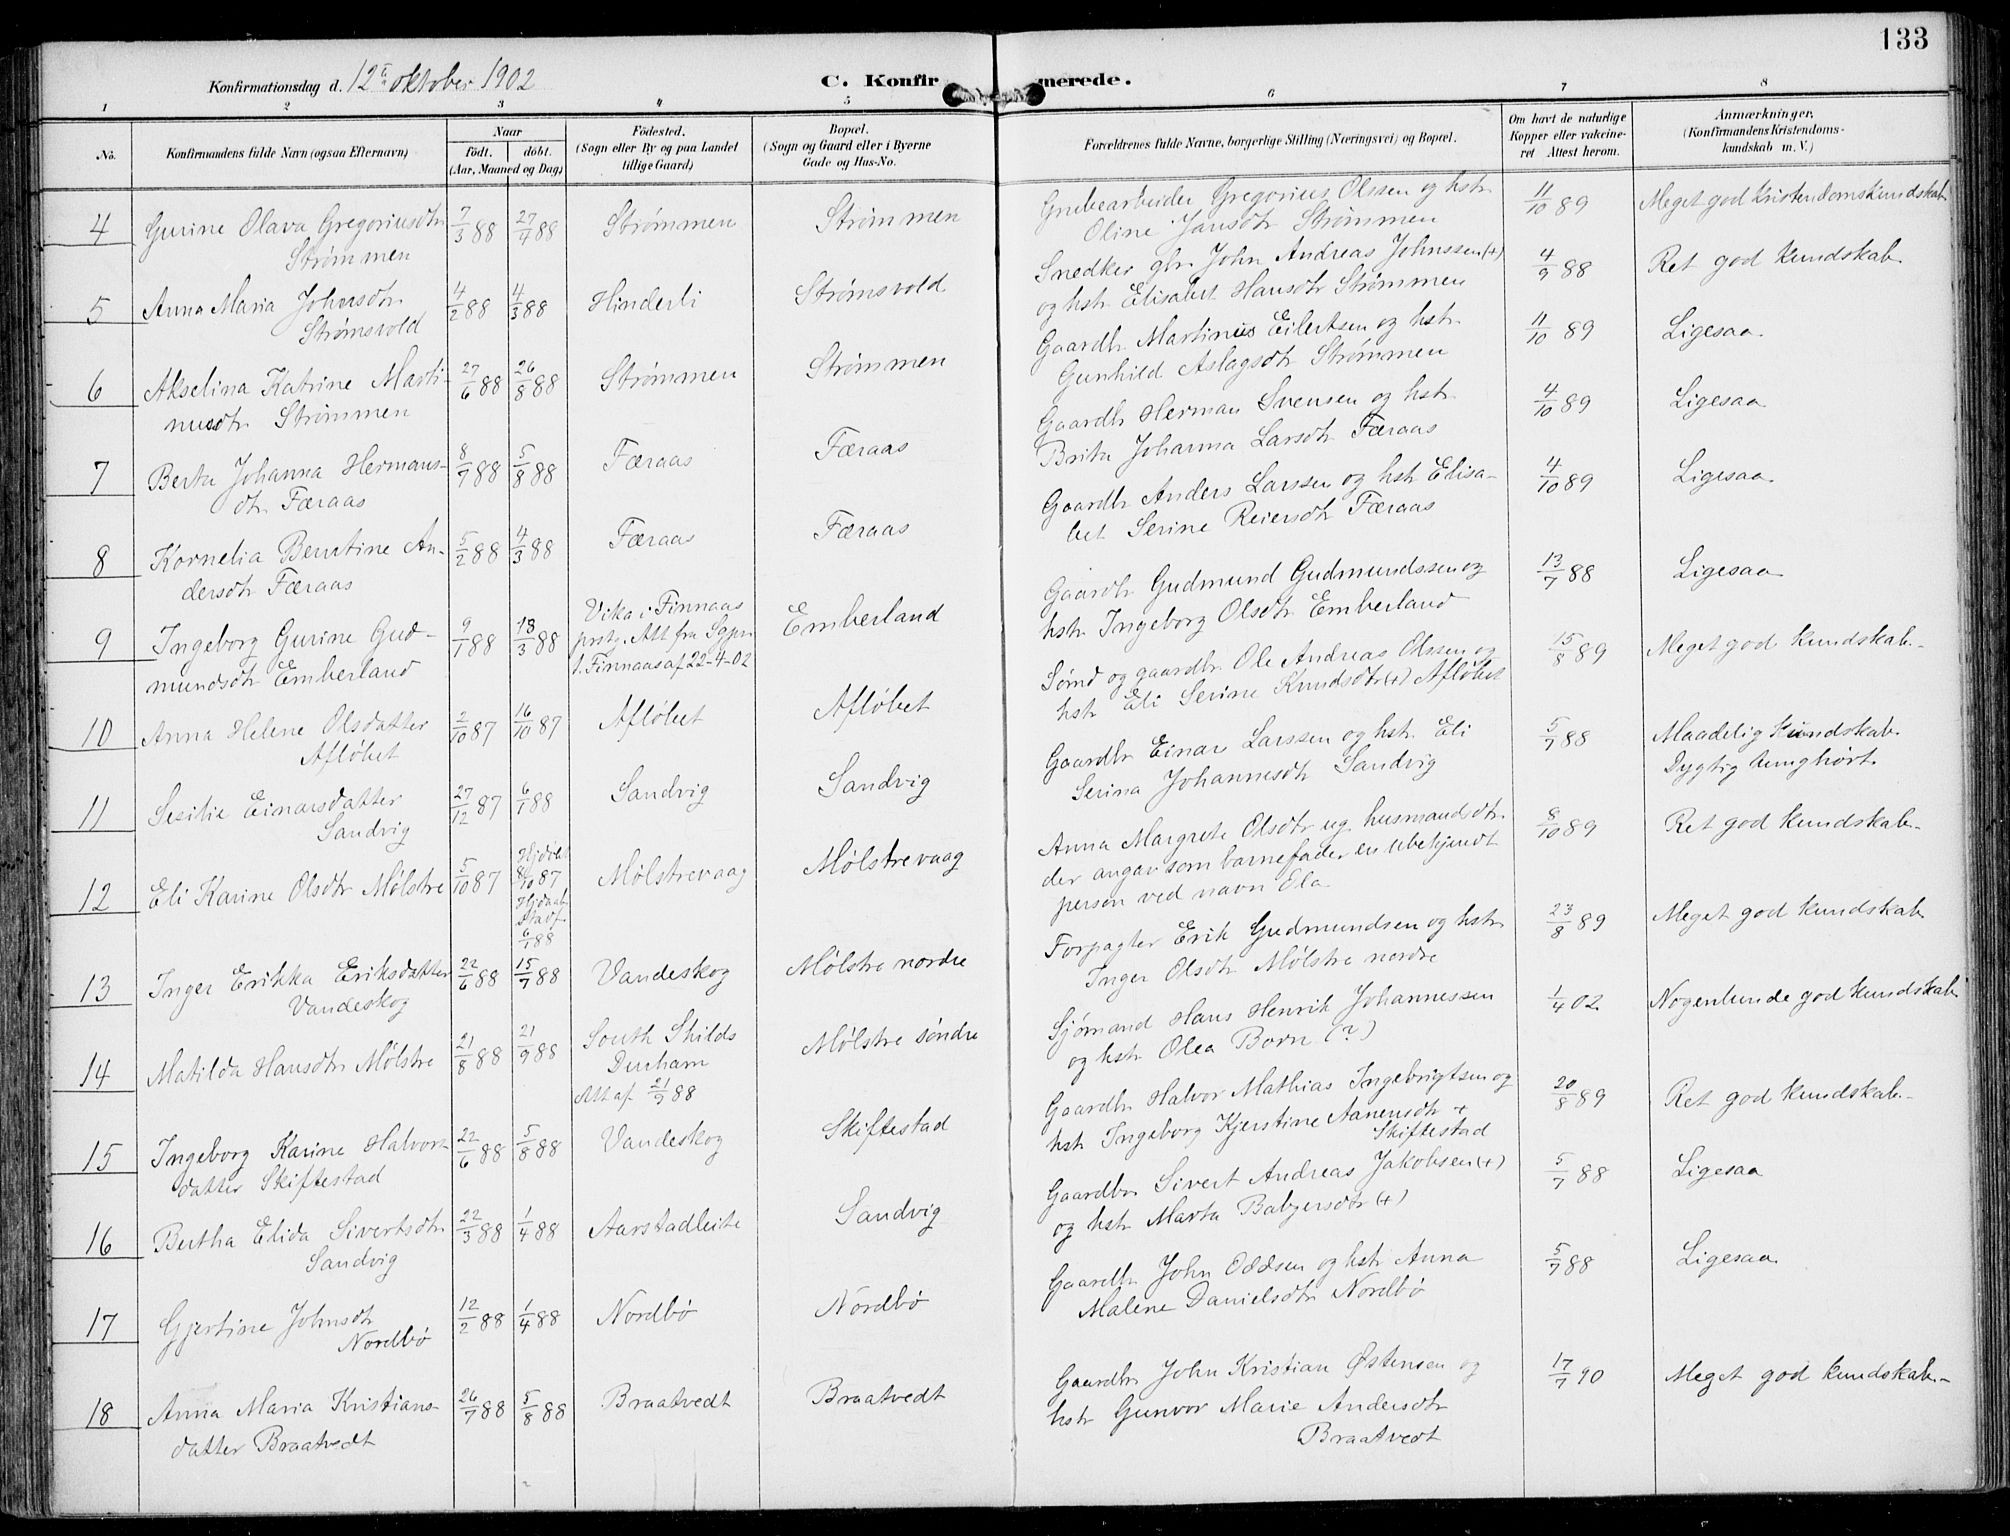 133
Konfirmationsdag d. 12te oktober 1902
C. Konfirmerede.
1 2 3 4 5 6 7 8
No.
Konfirmandens fulde Navn (ogsaa Efternavn)
Naar
født. døbt.
(Aar, Maaned og Dag)
Fødested.
(Sogn eller By og paa Landet
tillige Gaard)
Bopæl.
(Sogn og Gaard eller i Byerne
Gade og Hus-No.
Forældrenes fulde Navne, borgerlige Stilling (Næringsvei) og Bopæl.
Om havt de naturlige
Kopper eller vakcine-
ret Attest herom.
Anmærkninger.
(Konfirmandens Kristendoms-
kundskab m. V.)
4 Gurine Olava Gregoriusdtr 7/3 88 27/4 88 Strømmen Strømmen Grubearbeider Gregorius Olssen og hstr 11/10 89 Meget god Kristendomskundskab
Strømmen Oline Jansdtr Strømmen
5 Anna Maria Johnsdtr 4/2 88 4/3 88 Hinderli Strømsvold Snedker gbr. John Andreas Johnssen (+) 4/9 88 Ret god kundskab.
Strømsvold og hstr Elisabet Hansdtr Strømmen
6 Akselina Katrine Marti- 27/6 88 26/8 88 Strømmen Strømmen Gaardbr Martinius Eilertsen og hstr. 11/10 89 Ligesaa.
nusdtr Strømmen Gunhild Aslagsdtr Strømmen
7 Berta Johanna Hermans- 8/7 88 5/8 88 Færaas Færaas Gaardbr Herman Svensen og hstr. 4/10 89 Ligesaa
dtr. Færaas Brita Johanna Larsdtr Færaas
8 Kornelia Berntine An- 5/2 88 4/3 88 Færaas Færaas Gaardbr Anders Larssen og hstr Elisa- 4/10 89 Ligesaa.
dersdtr Færaas bet Serine Reiersdtr Færaas
9 Ingeborg Gurine Gud- 9/1 88 18/3 88 Vika i Finnaas Emberland Gaardbr Gudmund Gudmundssen og 13/7 88 Ligesaa
mundsdtr Emberland prstg. Att fra Sgpr. hstr Ingeborg Olsdtr Emberland
t. Finnaas af 22-4-02
10 Anna Helene Olsdatter 2/10 87 16/10 87 Afløbet Afløbet Sømd og gaardbr. Ole Andreas Olssen og 15/8 89 Meget god kundskab.
Afløbet hstr Eli Serine Knudsdtr (+) Afløbet
11 Sesilie Einarsdatter 27/12 87 6/1 88 Sandvig Sandvig Gaardbr Einar Larssen og hstr. Eli 5/7 88 Maadelig kundskab.
Sandvig Serina Johannesdtr Sandvig Dygtig tunghørt.
12 Eli Karine Olsdtr Mølstre 5/10 87 Hjdøbt 8/10 87 Mølstrevaag Mølstrevaag Anna Margrete Olsdtr ug. husmandsdtr. 8/10 89 Ret god kundskab.
Hjdaab stadf. 6/1 88 der angav som barnefader en ubekjendt
person ved navn Ola.
13 Inger Erikka Eriksdatter 22/6 88 15/7 88 Vandeskog Mølstre nordre Forpagter Erik Gudmundsen og hstr. 23/8 89 Meget god kundskab
Vandeskog Inger Olsdtr Mølstre nordre
14 Matilda Hansdtr Mølstre 21/8 88 21/9 88 South Skilds Mølstre søndre Sjømand Hans Henrik Johannessen 1/4 02 Nogenlunde god kundskab
Durham og hstr Olea Born (?)
Att af 21/9 88
15 Ingeborg Karine Halvors- 22/6 88 5/8 88 Vandeskog Skiftestad Gaardbr. Halvor Mathias Ingebrigtsen og 20/8 89 Ret god kundskab.
datter Skiftestad hstr Ingeborg Kjerstine Aanensdtr +
Skiftestad
16 Bertha Elida Sivertsdtr 22/3 88 1/4 88 Aarstadleite Sandvig Gaardbr Sivert Andreas Jakobsen (+) 5/7 88 Ligesaa
Sandvig og hstr Marta Babgersdtr (+)
17 Gjertine Johnsdt 12/2 88 1/4 88 Nordbø Nordbø Gaardbr John Oddsen og hstr Anna 5/7 88 Ligesaa
Nordbø Malene Danielsdtr Nordbø
18 Anna Maria Kristians- 26/7 88 5/8 88 Braatvedt Braatvedt Gaardbr. John Kristian Østensen og 17/7 90 Meget god kundskab.
datter Braatvedt hstr Gunvor Marie Andersdtr
Braatvedt